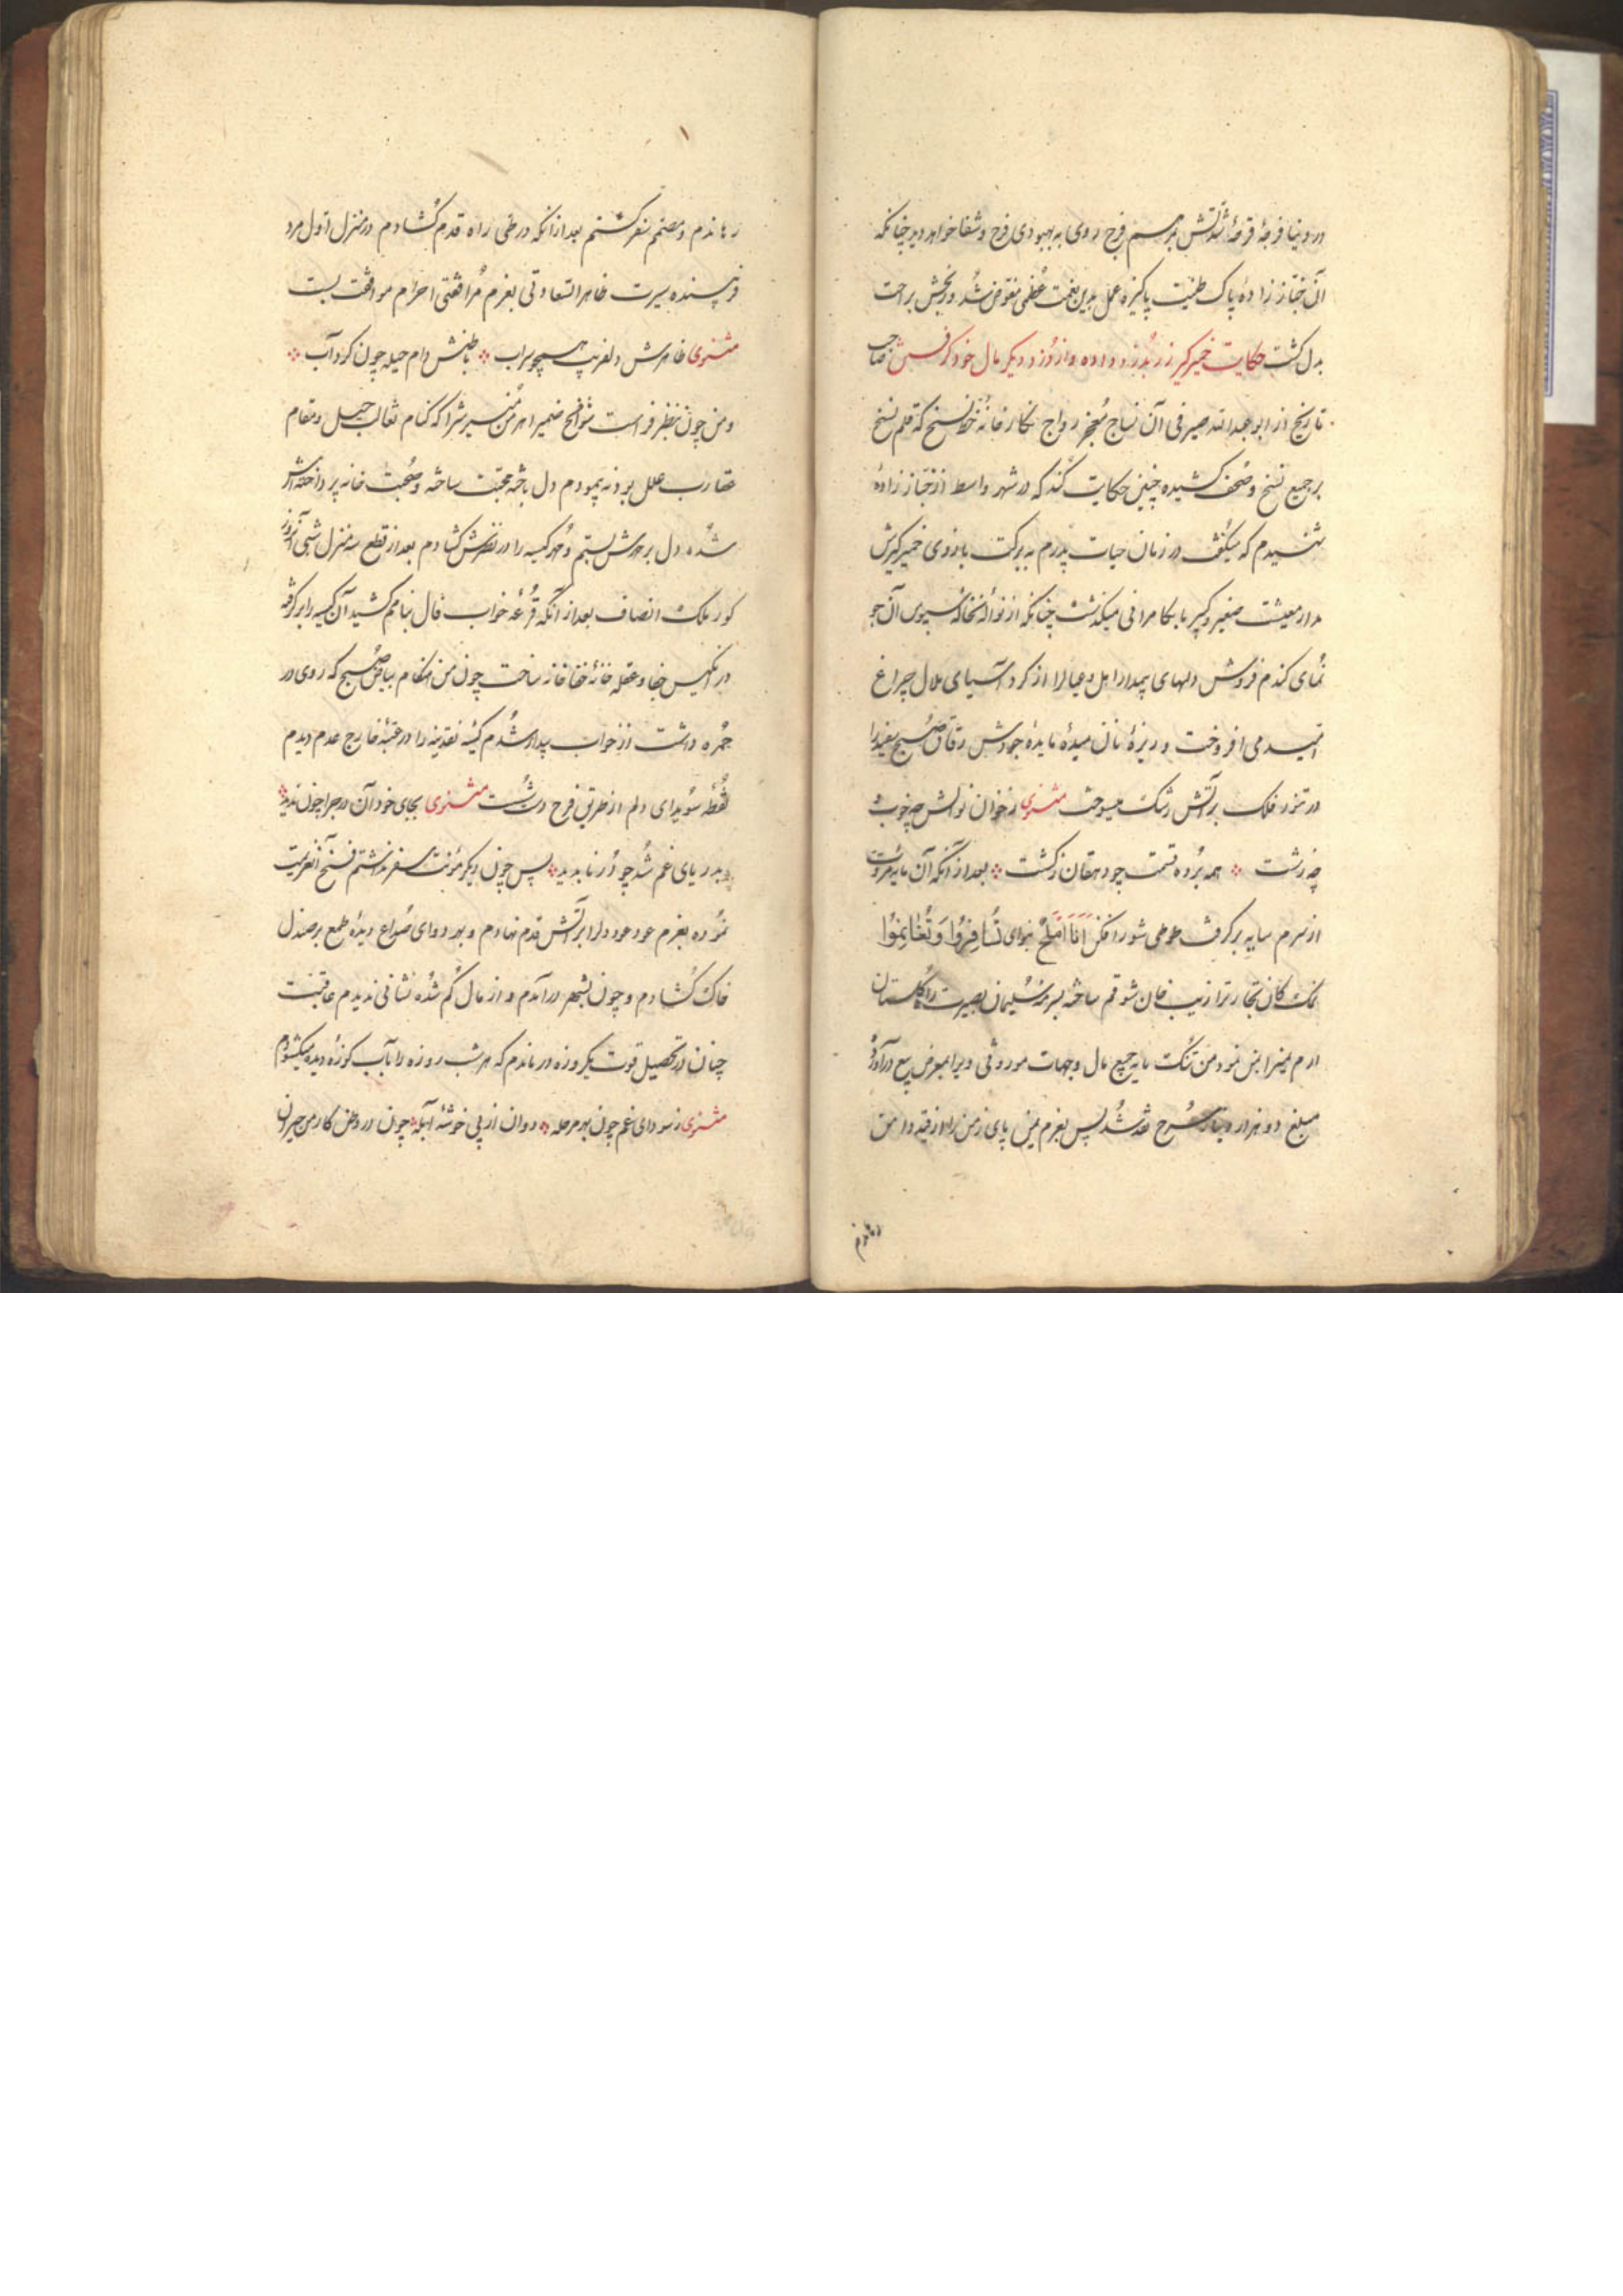 در دنیا فرجهٔ قرحهٔ شدتش بمرهم فرح روی به بهبودی فرح و شفا خواهد دید چنانکه
آن خباز زادهٔ پاک طینت پاکیزه عمل بدین نعمت عظمی مفوض شد و رنجش براحت
بدل گشت حکایت خمیرگیر زر بدزد داده و از دزد دیگر مال خود گرفتن صاحب
تاریخ از ابو عبدالله صیرفی آن نساج معجز رواج نگارخانهٔ خط نسخ که قلم نسخ
بر جمیع نسخ و صحف کشیده چنین حکایت کند که در شهر واسط از خباز زادهٔ
شنیدم که میگفت در زمان حیات پدرم به برکت بازوی خمیرگیرش
مدار معیشت صغیر و کبیر ما بکامرانی میگذشت چنانکه از نواله نخالهٔ سبوی آن جو
نمای گندم فروش دلهای بیمدار اهل و عیال را از گرد آسیای ملال چراغ
امید می افروخت و ریزهٔ نان میدهٔ مایدهٔ جودش رقاق صبح سفید را
در تنور فلک بر آتش رشک میسوخت مثنوی ز خوان نوالش چه خوب و
چه زشت همه برده قسمت چو دهقان ز کشت بعد از آنکه آن مایه مروت
از سرم سایه برگرفت طوطی شور افکن اَنَا اَمْلَحُ بنوای تُسَافِرُوا وَتُغَانِمُوا
نمک کان تجارت را زیب خان شوقم ساخته بسرمهٔ سلیمان بصیرت راه گلستان
ارم نمیرا بمن نمود من تنک مایه جمیع مال و جهات موروثی ویرا بمعرض بیع درآوردم
مبلغ دو هزار دینار سرخ نقد شد پس بعزم یمن پای زمن را از قید دامن
رهاندم
رهاندم و مصمم سفر گشتم بعد از آنکه در طی راه قدم گشادم در منزل اول مرد
پسندیده سیرت ظاهر السعادتی بعزم مرافقتی احرام موافقت بست
مثنوی ظاهرش دلفریب همچو سراب باطنش دام حیله چون گرداب
و من چون بنظر فراست سوانح ضمیر اهرمن سیرش را که کنام ثعالب حیل و مقام
عقارب علل بود نه پیمودم دل باخته محبت ساخته و صحبت خانه پرداخته‌اش
شده دل بر مهرش بستم و مهر کیسه را در نظرش گشادم بعد از قطع سه منزل شبی آن دزد
کور ملک انصاف بعد از آنکه قرعه خواب فال بنامم کشید آن کیسه را برگرفته
در نگین خفا و عقله خانهٔ خفا خانه ساخت چون من هنگام بیاض صبح که روی در
حمره داشت از خواب بیدار شدم کیسهٔ نقدینه را در عتبهٔ خارج عدم دیدم
نقطه سویدای دلم از طریق فرح دست شست مثنوی بجای خود آن در چرا چون ندید
بدریای غم شد چو در ناپدید پس چون دیگر مؤنت سفر نداشتم فسخ آن عزیمت
نموده بعزم عود عود دل را بر آتش قدم نهادم و بهر دوای صداع دیدهٔ طمع بر صندل
خاک گشادم و چون بشهر درآمدم و از مال گم شده نشانی ندیدم عاقبت
چنان در تحصیل قوت یکروزه درماندم که هر شب روزه را بآب کوزهٔ دیده میگشودم
مثنوی ز سودای غم چون بهر مرحله دوان از پی خوشهٔ آبله چون در وطن کار من حیران